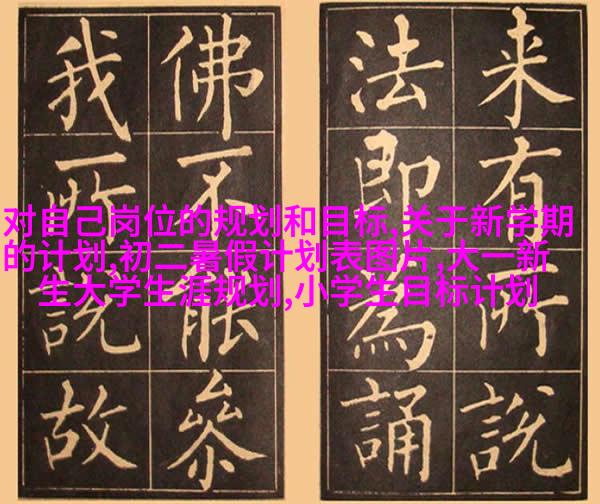 来有所說
法即為誦
佛不能參
我所說故
对自己岗位的规划和目标,关于新学期
的计划,初二暑假计划表图片,大一新
生大学生涯规划,小学生目标计划